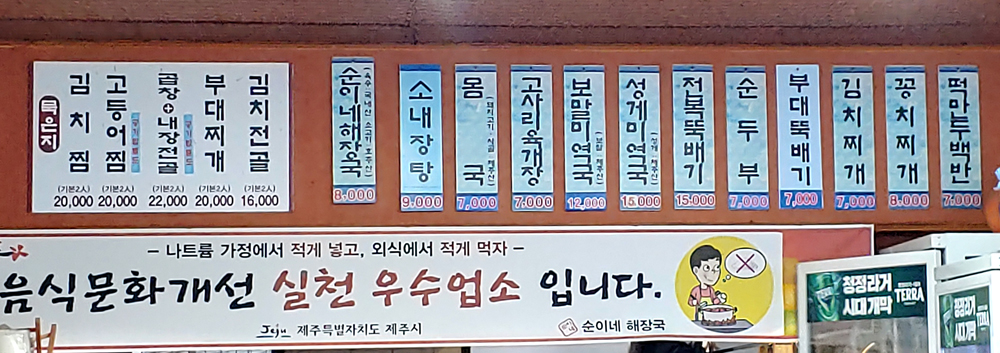 묵은지
김치찜
(기본2人)
20,000
고등어찜
(기본2人)
20,000
곱창+내장전골
(기본2人)
22,000
부대찌개
(기본2人)
20,000
김치전골
(기본2人)
16,000
순이네해장국
8,000
소내장탕
9,000
몸국
7,000
고사리육개장
7,000
보말미역국
12,000
성게미역국
15,000
전복뚝배기
15,000
순두부
7,000
부대뚝배기
7,000
김치찌개
7,000
꽁치찌개
8,000
떡만두백반
7,000
– 나트륨 가정에서 적게 넣고, 외식에서 적게 먹자 –
음식문화개선 실천 우수업소 입니다.
Jeju 제주특별자치도 제주시
순이네 해장국
청정라거
시대개막
TERRA
청정라거
시대개막